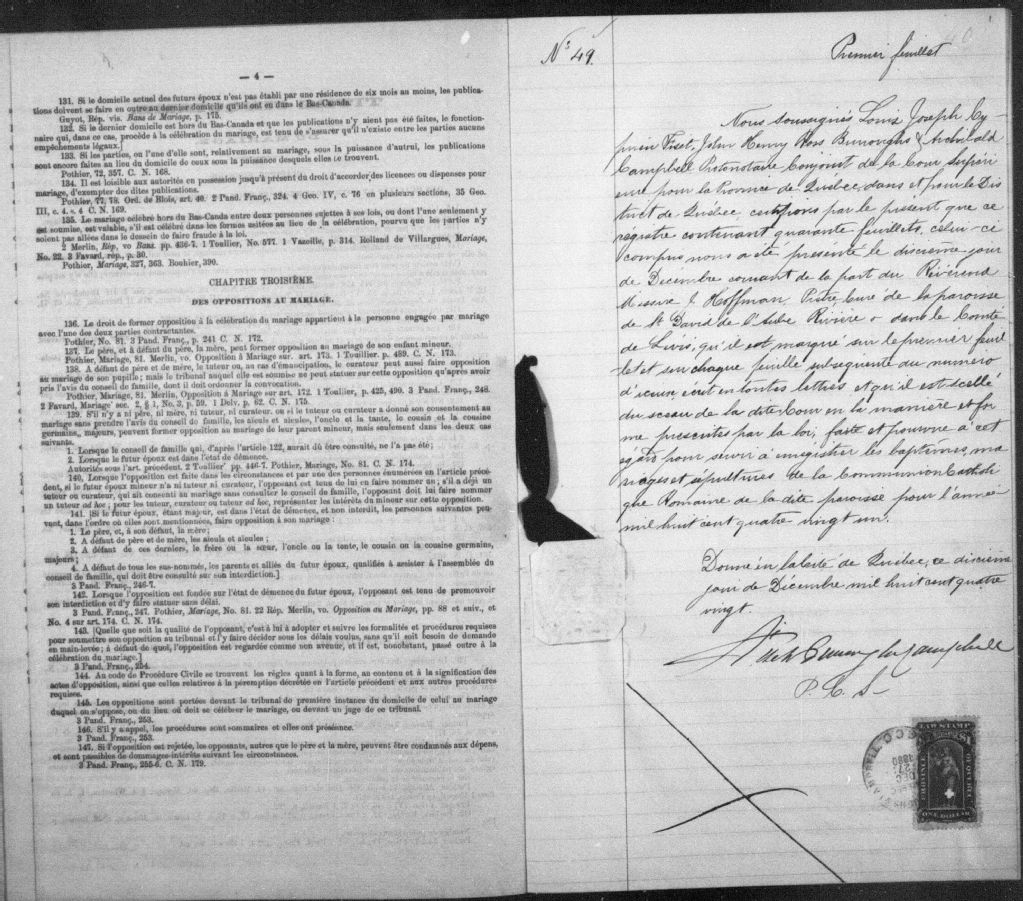 — 4 —
131. Si le domicile actuel des futurs époux n'est pas établi par une résidence de six mois au moins, les publica-
tions doivent se faire en outre au dernier domicile qu'ils ont eu dans le Bas-Canada.
Guyot, Rép. vis. Bans de Mariage, p. 175.
132. Si le dernier domicile est hors du Bas-Canada et que les publications n'y aient pas été faites, le fonction-
naire qui, dans ce cas, procède à la célébration du mariage, est tenu de s'assurer qu'il n'existe entre les parties aucuns
empêchements légaux.]
133. Si les parties, ou l'une d'elle sont, relativement au mariage, sous la puissance d'autrui, les publications
sont encore faites au lieu du domicile de ceux sous la puissance desquels elle se trouvent.
Pothier, 72, 357. C. N. 168.
134. Il est loisible aux autorités en possession jusqu'à présent du droit d'accorder des licences ou dispenses pour
mariage, d'exempter des dites publications.
Pothier, 77, 78. Ord. de Blois, art. 40. 2 Pand. Franç., 324. 4 Geo. IV, c. 76 en plusieurs sections, 35 Geo.
III, c. 4. s. 4 C. N. 169.
135. Le mariage célébré hors du Bas-Canda entre deux personnes sujettes à ses lois, ou dont l'une seulement y
est soumise, est valable, s'il est célébré dans les formes usitées au lieu de la célébration, pourvu que les parties n'y
soient pas allées dans le dessein de faire fraude à la loi.
2 Merlin, Rép, vo Bans. pp. 436-7. 1 Toullier, No. 577. 1 Vazeille, p. 314. Rolland de Villargues, Mariage,
No. 22. 3 Favard, rép., p. 30.
Pothier, Mariage, 327, 363. Bouhier, 390.
CHAPITRE TROISIÈME.
DES OPPOSITIONS AU MARIAGE.
136. Le droit de former opposition à la célébration du mariage appartient à la personne engagée par mariage
avec l'une des deux parties contractantes.
Pothier, No. 81. 3 Pand. Franç., p. 241 C. N. 172.
137. Le père, et à défaut du père, la mère, peut former opposition au mariage de son enfant mineur.
Pothier, Mariage, 81. Merlin, vo. Opposition à Mariage sur. art. 173. 1 Touillier. p. 489. C. N. 173.
138. A défaut de père et de mère, le tuteur ou, en cas d'émancipation, le curateur peut aussi faire opposition
au mariage de son pupille; mais le tribunal auquel elle est soumise ne peut statuer sur cette opposition qu'après avoir
pris l'avis du conseil de famille, dont il doit ordonner la convocation.
Pothier, Mariage, 81. Merlin, Opposition à Mariage sur art. 172. 1 Toullier, p. 425, 490. 3 Pand. Franç., 248.
2 Favard, Mariage' sec. 2, § 1, No. 3, p. 59. 1 Delv. p. 62. C. N. 175.
139. S'il n'y a ni père, ni mère, ni tuteur, ni curateur, ou si le tuteur ou curateur a donné son consentement au
mariage sans prendre l'avis du conseil de famille, les aïeuls et aïeules, l'oncle et la tante, le cousin et la cousine
germains,, majeurs, peuvent former opposition au mariage de leur parent mineur, mais seulement dans les deux cas
suivants.
1. Lorsque le conseil de famille qui, d'après l'article 122, aurait dû être consulté, ne l'a pas été;
2. Lorsque le futur époux est dans l'état de démence.
Autorités sous l'art. précédent. 2 Toullier' pp. 446-7. Pothier, Mariage, No. 81. C. N. 174.
140, Lorsque l'opposition est faite dans les circonstances et par une des personnes énumérées en l'article précé-
dent, si le futur époux mineur n'a ni tuteur ni curateur, l'opposant est tenu de lui en faire nommer un; s'il a déjà un
tuteur ou curateur, qui ait consenti au mariage sans consulter le conseil de famille, l'opposant doit lui faire nommer
un tuteur ad hoc; pour les tuteur, curateur ou tuteur ad hoc, représenter les intérêts du mineur sur cette opposition.
141. [Si le futur époux, étant majeur, est dans l'état de démence, et non interdit, les personnes suivantes peu-
vent, dans l'ordre où elles sont mentionnées, faire opposition à son mariage:
1. Le père, et, à son défaut, la mère;
2. A défaut de père et de mère, les aïeuls et aïeules;
3. A défaut de ces derniers, le frère ou la sœur, l'oncle ou la tante, le cousin ou la cousine germains,
majeurs;
4. A défaut de tous les sus-nommés, les parents et alliés du futur époux, qualifiés à assister à l'assemblée du
conseil de famille, qui doit être consulté sur son interdiction.]
3 Pand. Franç., 246-7.
142. Lorsque l'opposition est fondée sur l'état de démence du futur époux, l'opposant est tenu de promouvoir
son interdiction et d'y faire statuer sans délai.
3 Pand. Franç., 247. Pothier, Mariage, No. 81. 22 Rép. Merlin, vo. Opposition au Mariage, pp. 88 et suiv., et
No. 4 sur art. 174. C. N. 174.
143. [Quelle que soit la qualité de l'opposant, c'est à lui à adopter et suivre les formalités et procédures requises
pour soumettre son opposition au tribunal et l'y faire décider sous les délais voulus, sans qu'il soit besoin de demande
en main-levée; à défaut de quoi, l'opposition est regardée comme non avenue, et il est, nonobstant, passé outre à la
célébration du mariage.]
3 Pand. Franç., 254.
144. Au code de Procédure Civile se trouvent les règles quant à la forme, au contenu et à la signification des
actes d'opposition, ainsi que celles relatives à la péremption décrétée en l'article précédent et aux autres procédures
requises.
145. Les oppositions sont portées devant le tribunal de première instance du domicile de celui au mariage
duquel on s'oppose, ou du lieu où doit se célébrer le mariage, ou devant un juge de ce tribunal.
3 Pand. Franç., 253.
146. S'il y a appel, les procédures sont sommaires et elles ont préséance.
3 Pand. Franç., 253.
147. Si l'opposition est rejetée, les opposants, autres que le père et la mère, peuvent être condamnés aux dépens,
et sont passibles de dommages-intérêts suivant les circonstances.
3 Pand. Franç., 255-6. C. N. 179.
No 49.
Premier feuillet
Nous soussignés Louis Joseph Cy-
prien Fiset, John Henry Ross Burroughs & Archibald
Campbell Protonotaire Conjoint de la Cour Supéri
eure pour la Province de Québec, dans et pour le Dis
trict de Québec, certifions par le présent que ce
registre contenant quarante feuillets, celui-ci
compris nous a été présenté le dixième jour
de Décembre courant de la part du Révérend
Messire J. Hoffman, Prêtre Curé de la paroisse
de St David de l'Aube Rivière dans le Comté
de Lévis, qu'il est marqué sur le premier feuil
let et sur chaque feuille subséquente du numéro
d'iceux écrit en toutes lettres et qu'il est scellé
du sceau de la dite Cour en la manière et for
me prescrites par la loi, faite et pourvue à cet
égard pour servir à enregistrer les baptêmes, ma
riages et sépultures de la Communion Catholi
que Romaine de la dite paroisse pour l'année
mil huit cent quatre vingt un.
Donné en la Cité de Québec, ce dixième
jour de Décembre mil huit cent quatre
vingt.
Fiset Burroughs Campbell
P. C. S.
LAW STAMP
$1
PROVINCE
OF QUEBEC
ONE DOLLAR
DEC
1880